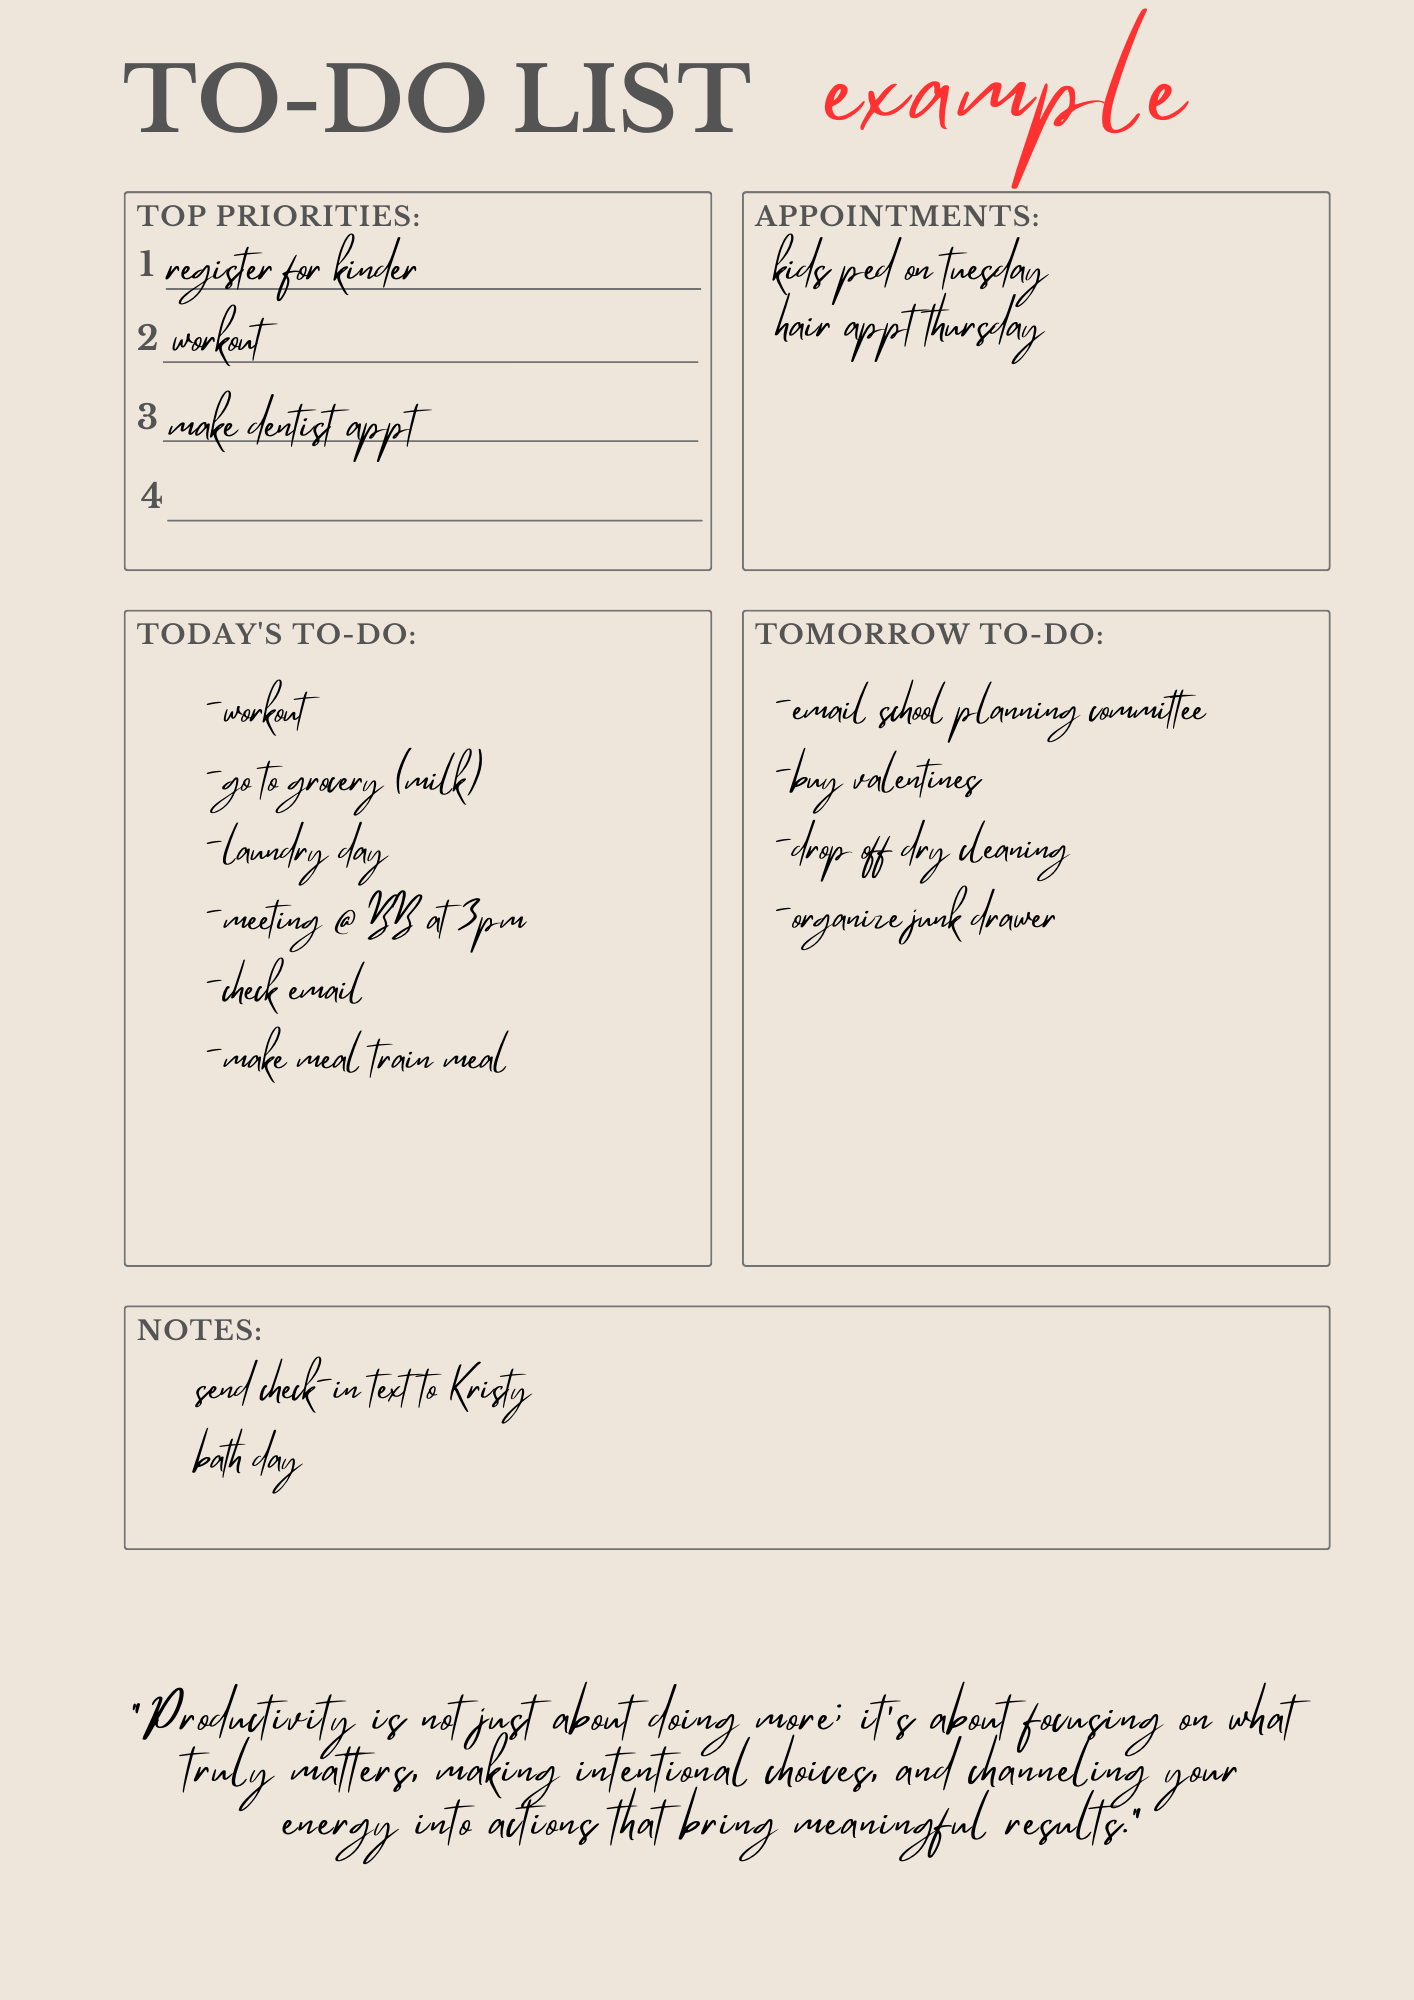 TO-DO LIST example
TOP PRIORITIES:
1 register for kinder
2 workout
3 make dentist appt
4
APPOINTMENTS:
kids ped on tuesday
hair appt thursday
TODAY'S TO-DO:
-workout
-go to grocery (milk)
-laundry day
-meeting @ BB at 3pm
-check email
-make meal train meal
TOMORROW TO-DO:
-email school planning committee
-buy valentines
-drop off dry cleaning
-organize junk drawer
NOTES:
send check-in text to Kristy
bath day
"Productivity is not just about doing more; it's about focusing on what
truly matters, making intentional choices, and channeling your
energy into actions that bring meaningful results."